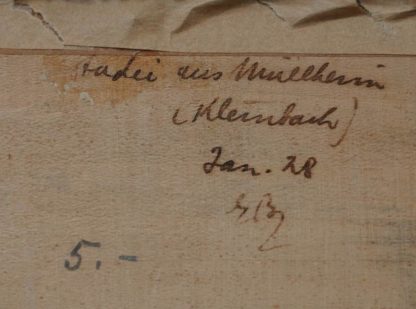 aus Müllheim
(Kleinbach)
Jan. 28
5.-